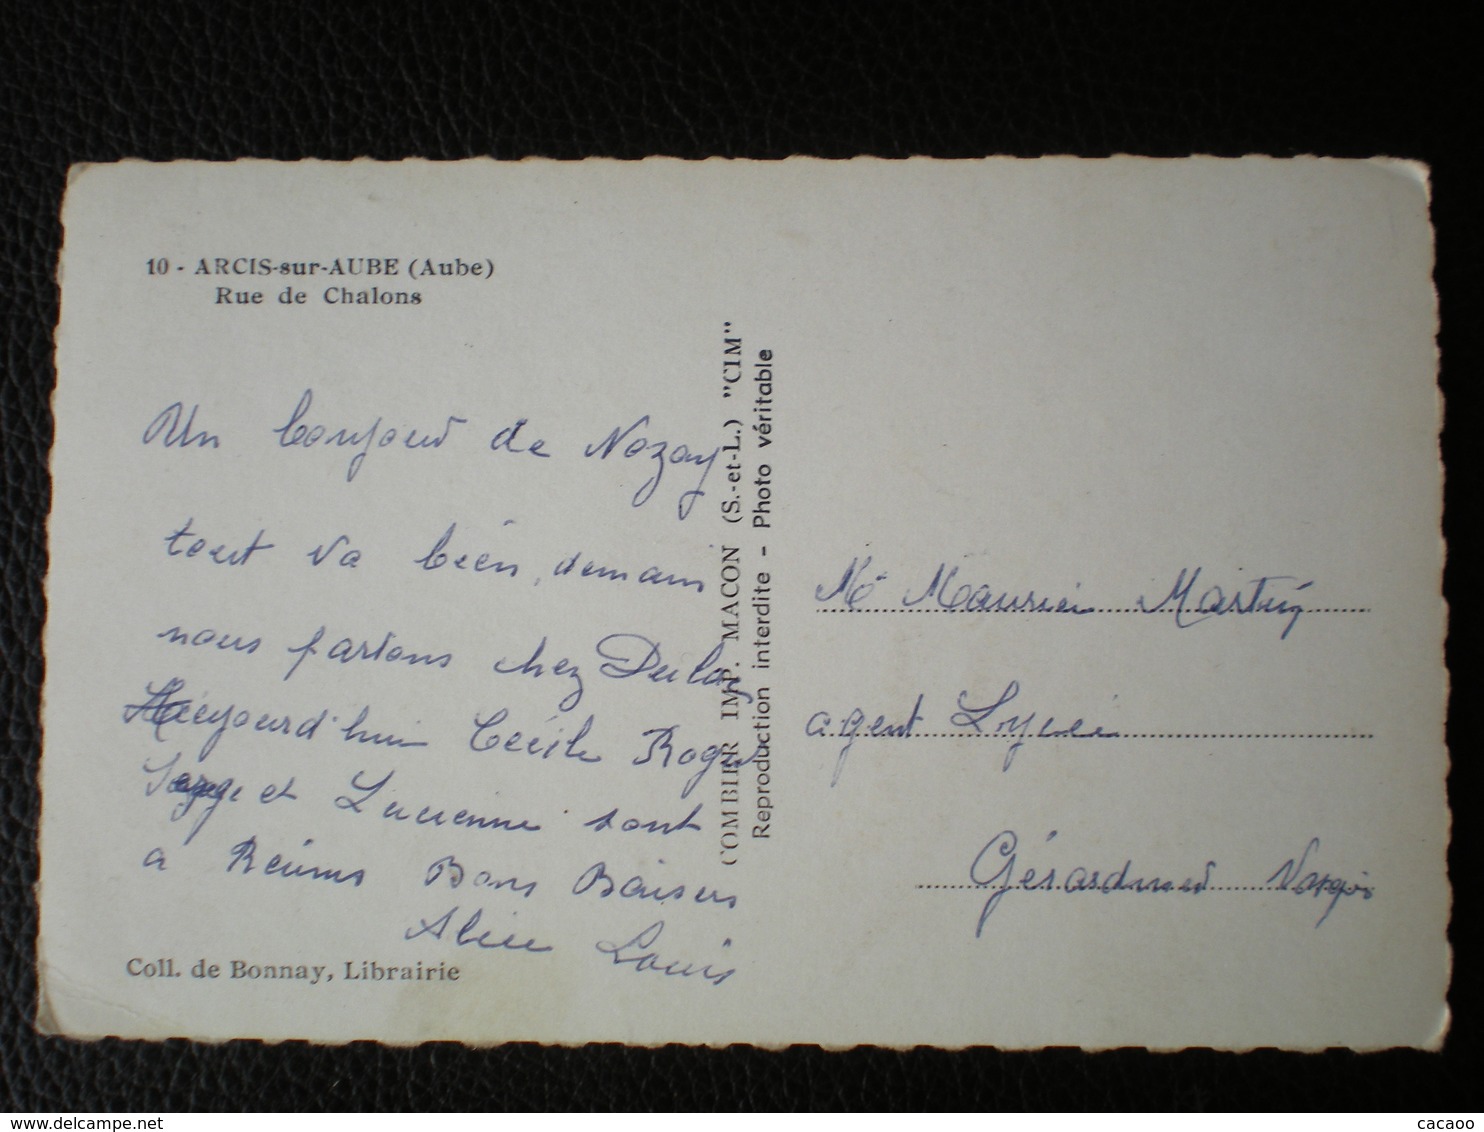 10 - ARCIS-sur-AUBE (Aube)
Rue de Chalons
Un bonjour de Nozay
tout va bien, demain
nous partons chez
Aujourd'hui Cécile Roger
Serge et Lucienne sont
a Reims Bons Baisers
Alice Louis
Coll. de Bonnay, Librairie
COMBIER IMP. MACON (S.-et-L.) "CIM"
Reproduction interdite - Photo véritable
Mr Maurice
agent Lycée
Gérardmer Vosges
cacaoo